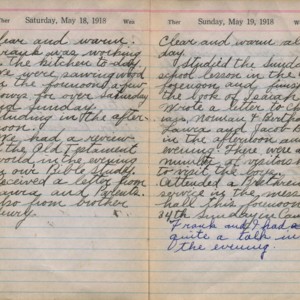 Ther Saturday, May 18, 1918 Wea
Clear and warm.
Frank was working
in the kitchen to-day.
We were sawing wood
in the forenoon a few
hours for over Saturday
and Sunday.
Studing in the after-
noon.
We had a review
of the Old Testament
in the evening
in our Bible study.
Received a letter from
and Parents.
also from brother

Ther Sunday, May 19, 1918 Wea
Clear and warm all
day.
I studied the Sunday
school lesson in the
forenoon and
the book of Isaiah.
Wrote a letter to
Norman &
Laura and Jacob
in the afternoon and
evening. There were a
number of visitors
to visit the boys.
Attended a
service in the mess
hall this forenoon.
34th Sunday in Camp
Frank and I had a
quite a talk in
the evening.